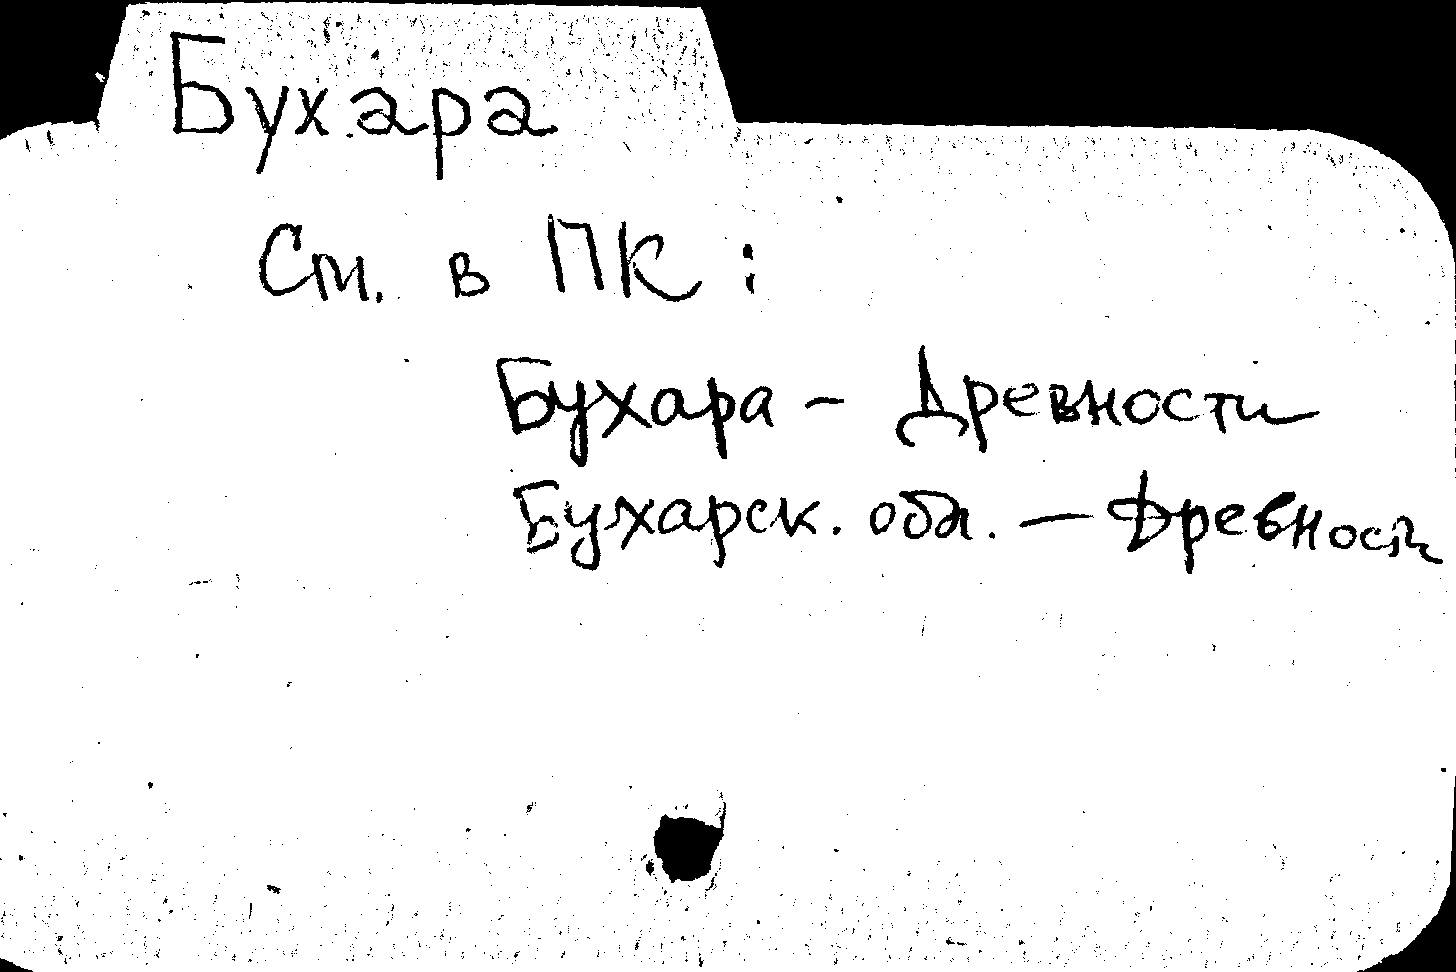 Бухара
См. в ПК :
Бухара - Древности
Бухарск. обл. - Древности